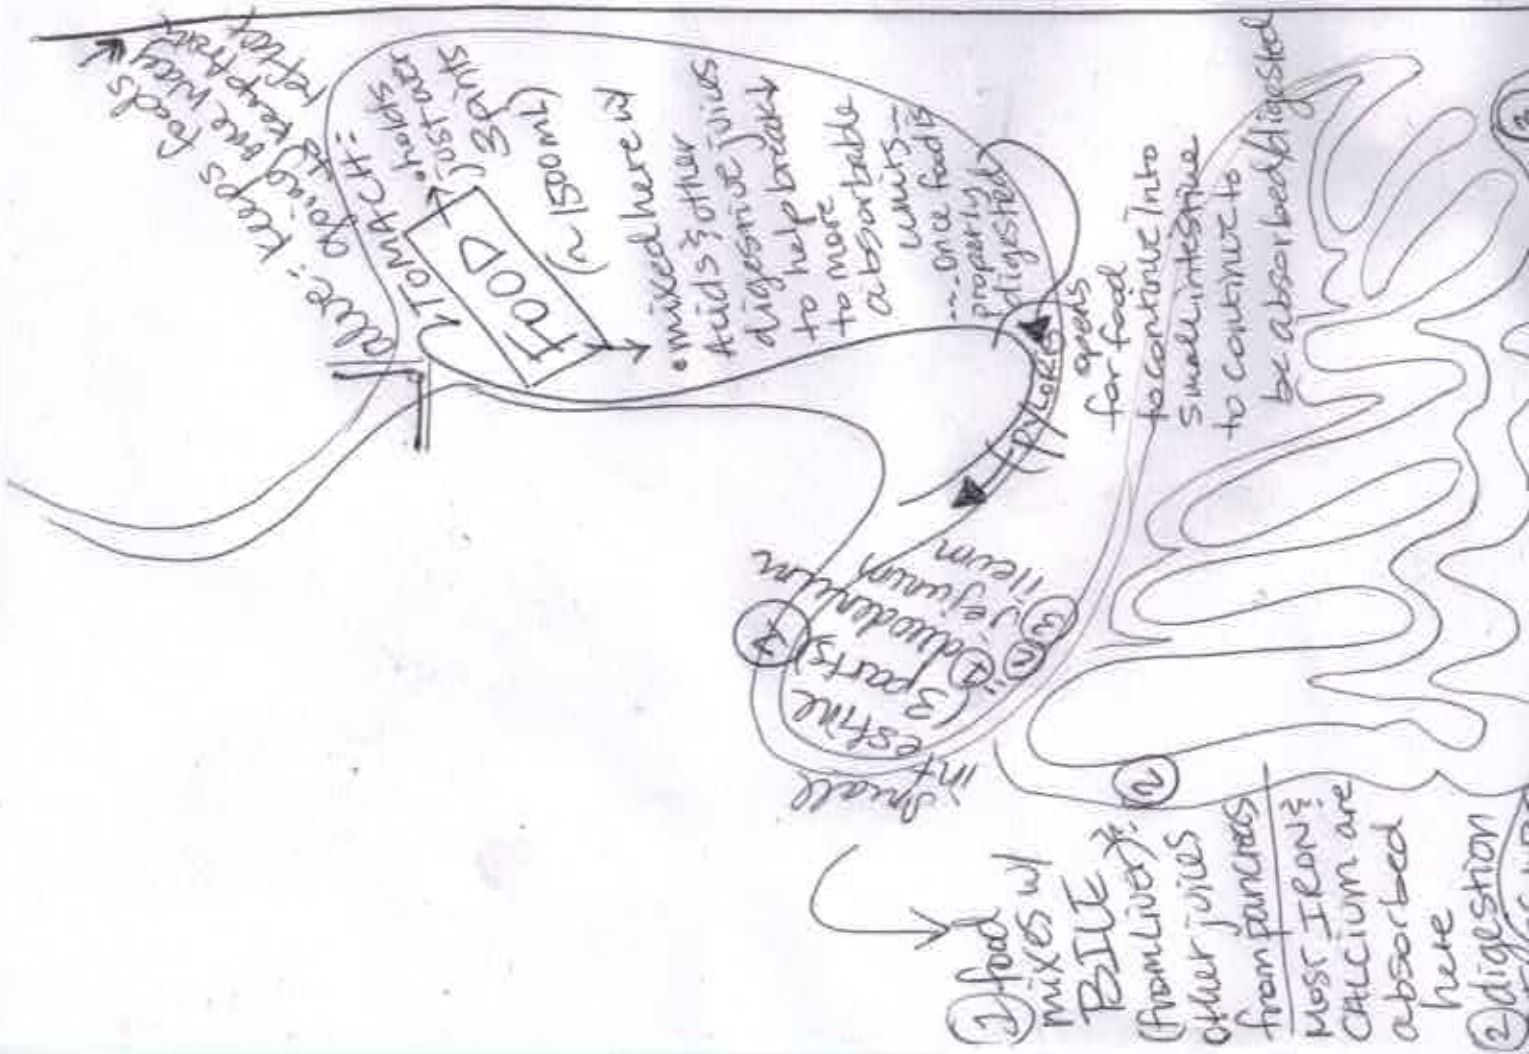 valve: keeps foods ↓
going one way
to keep from
reflux
STOMACH:
• holds
just over
3 pints
(~ 1500ml)
FOOD
• mixed here w/
Acids & other
digestive juices
to help break ↓
to more
absorbable
units —
... once food is
properly
digested
(PYLORIS)
opens
for food
to continue into
small intestine
to continue to
be absorbed/digested
small
int
estine
(3 parts)
① duodenum
② jejunum
③ ileum
①
②
③
① food
mixes w/
BILE
(from liver) &
other juices
from pancreas
MOST IRON &
CALCIUM are
absorbed
here
② digestion